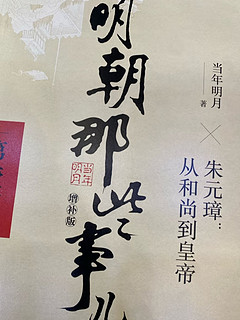 明朝那些事儿
当年明月
增补版
当年明月 著
朱元璋：
从和尚到皇帝